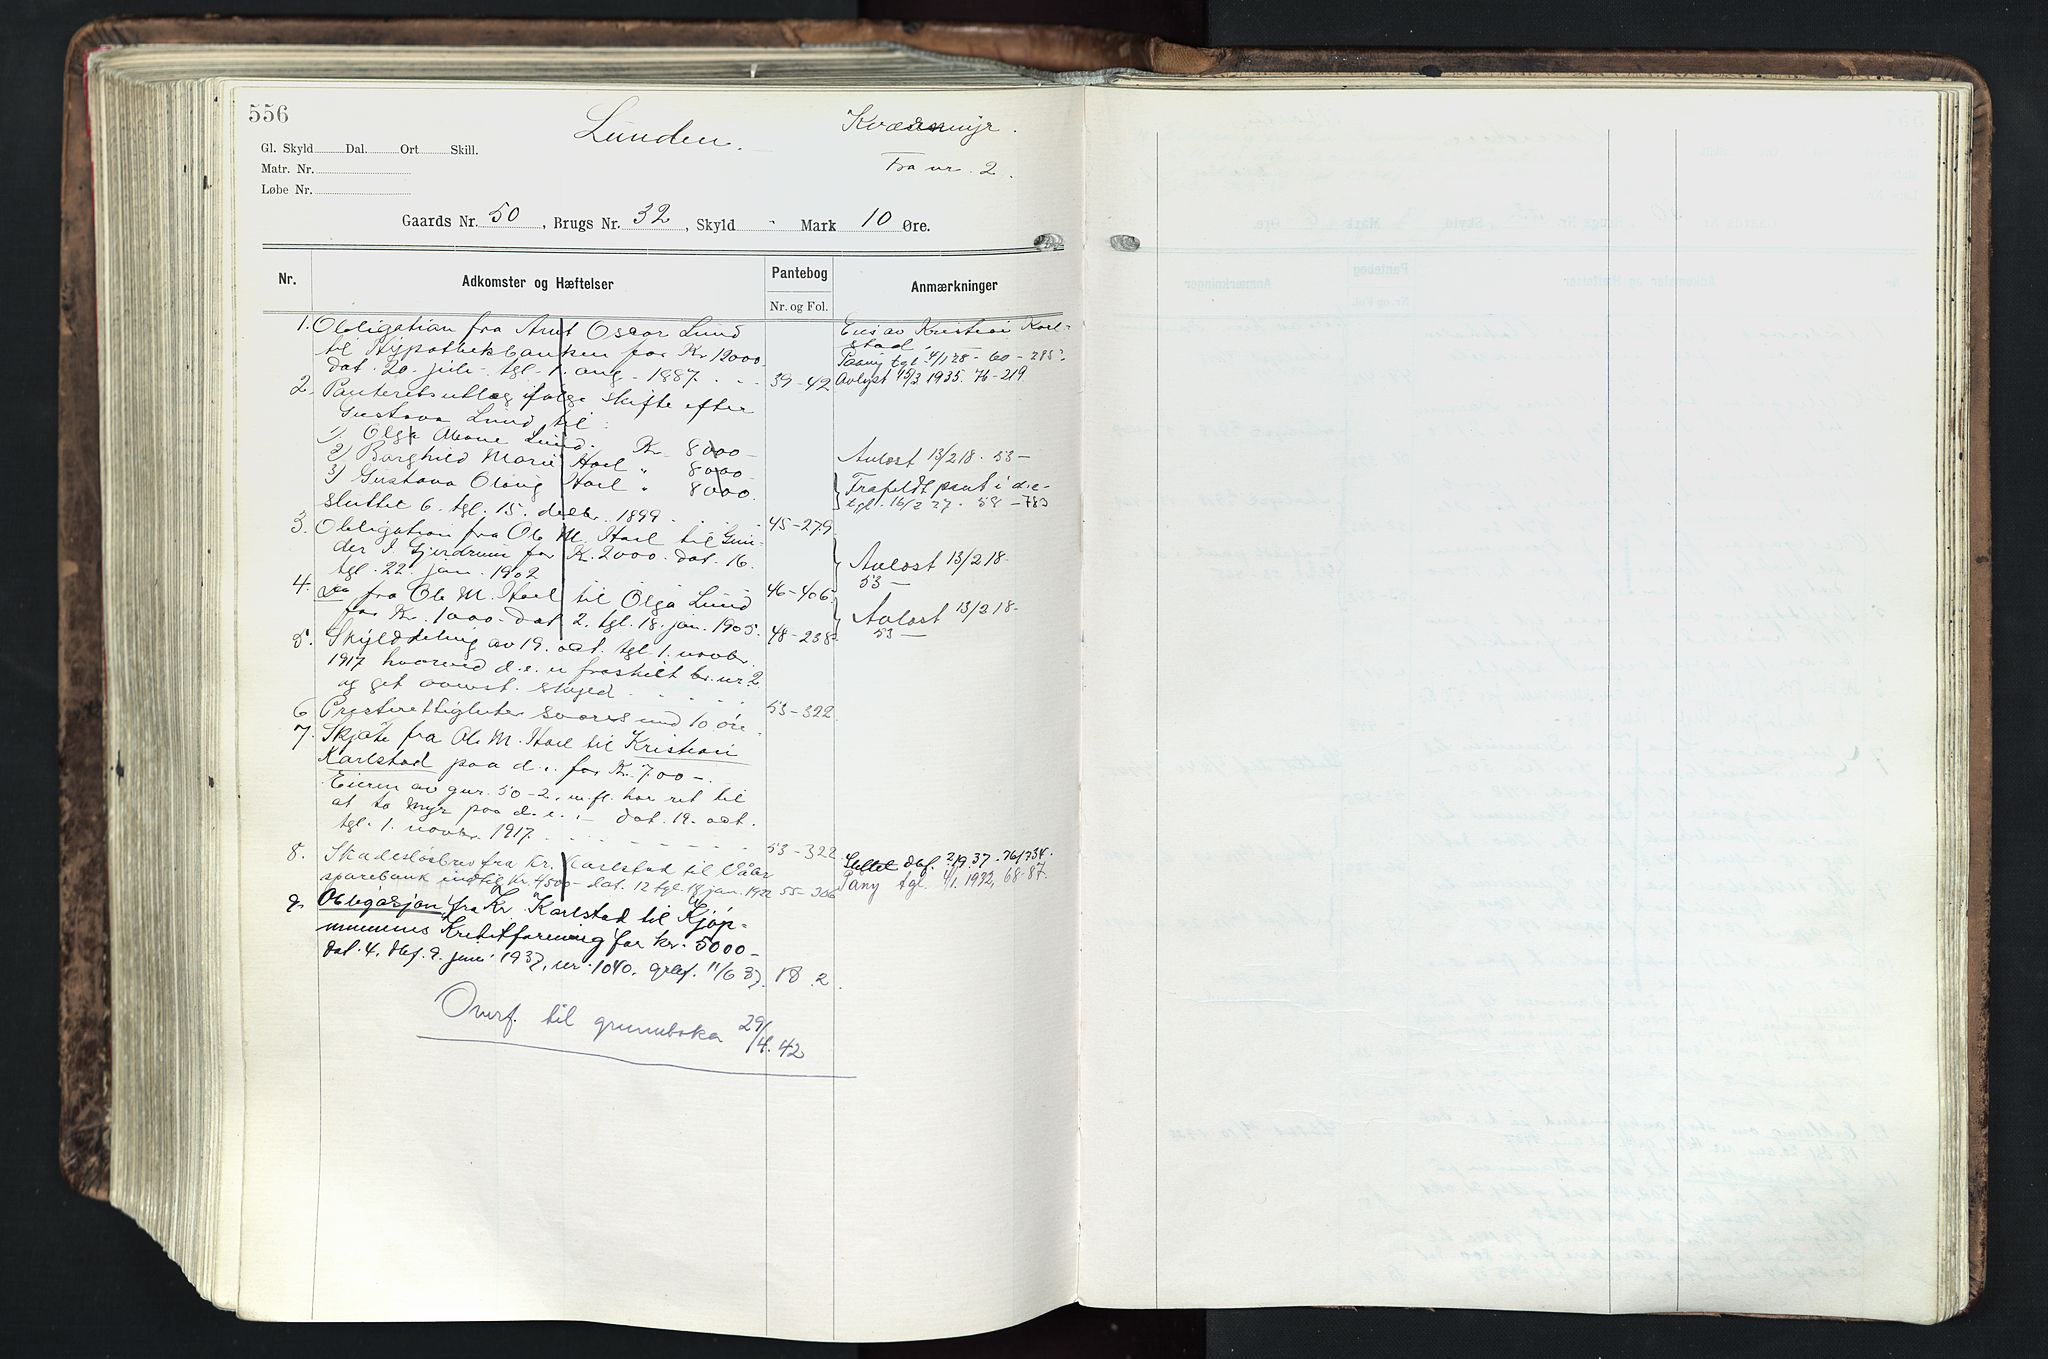 556
Lunden.
Kværnmyr.
Gl. Skyld Dal. Ort Skill.
Matr. Nr.
Løbe Nr.
Fra nr. 2.
Gaards Nr. 50, Brugs Nr. 32, Skyld - Mark 10 Øre.
Nr. Adkomster og Hæftelser Pantebog Anmærkninger
Nr. og Fol.
1. Obligation fra Arnt Oscar Lund
til Hypothekbanken for Kr 12000-
dat. 20. juli - tgl. 1. aug. 1887. 39-42
Eies av Kristian Karl-
stad.
Pasnij tgl. 4/1 28 - 60 - 295.
Avlyst 15/3 1935. 76-219.
2. Panteretsutlæg ifølge skifte efter
Gustava Lund til:
1) Olga Lund. Kr. 8000-
2) Borghild Marie Hoel " 8000-
3) Gustava Olaug Hoel " 8000.
sluttet 6. tgl. 15. decbr. 1899. 45-279.
Avløst 13/2 18. 53-
Trafeldt pant i d.e.
tgl. 16/2 27. 58-783
3. Obligation fra Ole M. Hoel til Gun-
der J. Gjerdrum for Kr. 2000. dat. 16.
tgl. 22. jan. 1902 46-406.
Avløst 13/2 18.
53-
4. Do fra Ole M. Hoel til Olga Lund
for Kr. 1000- dat 2. tgl. 18. jan. 1905. 48-238.
Avløst 13/2 18-
53-
5. Skylddeling av 19. oct. tgl. 1. novbr.
1917 hvorved d.e. er fraskilt br.nr. 2
og get ovenst. skyld. 53-322.
6 Presterettigheter svares med 10 øre.
7. Skjøte fra Ole M. Hoel til Kristian
Karlstad paa d.e. for Kr. 700-.
Eieren av gnr. 50-2, m.fl. har ret til
at ta myr paa d.e. - dat. 19. oct.
tgl. 1. novbr 1917. 53-322.
8. Skadesløsbrev fra Kr. Karlstad til Våler
sparebank indtil Kr. 4500- dat. 12 tgl. 18 jan. 1922 55-306
Slettet dbf. 2/9. 37. 76/734.
Pany tgl. 4/1. 1932, 68-87.
9. Obligasjon fra Kr. Karlstad til Kjøp-
mennenes Kreditforening for kr. 5000-
dat. 4. dbf. 9. juni 1937, nr. 1040. 11/6 37. 18 2.
Overf. til grunnboka 29/4. 42